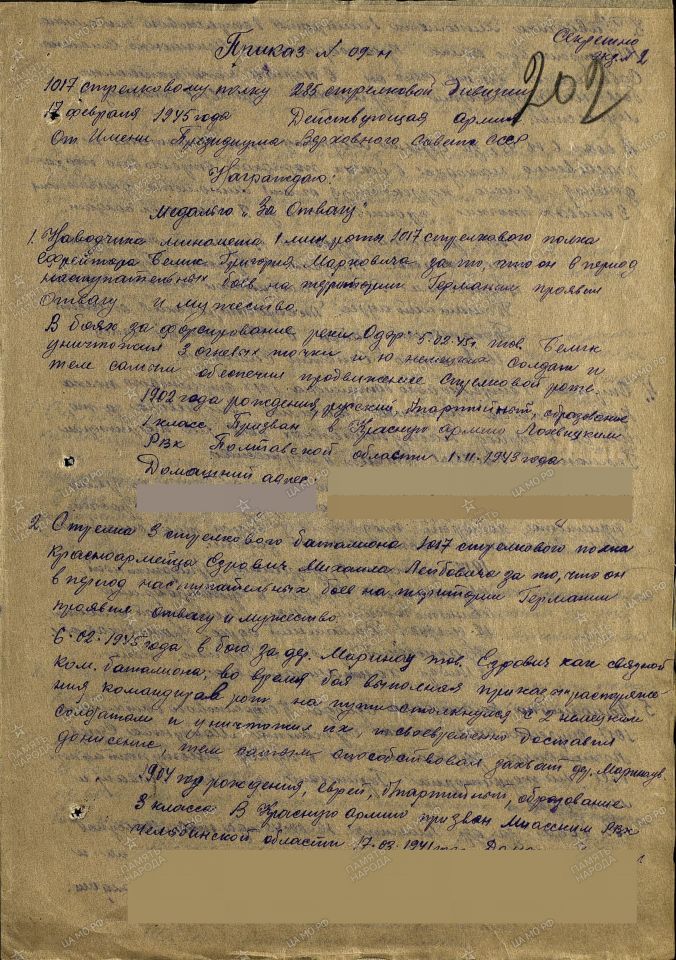 Секретно
экз № 2
202
Приказ № 09-н
1017 стрелковому полку 285 стрелковой дивизии
17 февраля 1945 года Действующая армия
От Имени Президиума Верховного Совета СССР
Награждаю:
Медалью "За Отвагу":
1. Наводчика миномета 1 мин роты 1017 стрелкового полка
Ефрейтора Белик Григория Марковича за то, что он в период
наступательных боев на территории Германии проявил
отвагу и мужество.
В боях за форсирование реки Одер 5.02.45г тов. Белик
уничтожил 3 огневых точки и 10 немецких солдат и
тем самым обеспечил продвижение стрелковой роте.
1902 года рождения, русский, б/партийный, образование
1 класс. Призван в Красную армию Лохвицким
РВК Полтавской области 1.11.1943 года
Домашний адрес:
2. Стрелка 3 стрелкового батальона 1017 стрелкового полка
Красноармейца Езрович Михаила Лейбовича за то, что он
в период наступательных боев на территории Германии
проявил отвагу и мужество
6.02.1945 года в бою за дер. Мариенау тов. Езрович как связной
ком. батальона, во время боя выполняя приказ
ния командиров рот на пути столкнулся с 2 немецким
солдатами и уничтожил их, и своевременно доставил
донисение, тем самым способствовал захват дер. Мариенау
1904 год рождения, еврей, б/партийный, образование
3 класса. В Красную армию призван Миасским РВК
Челябинской области 17.03.1941